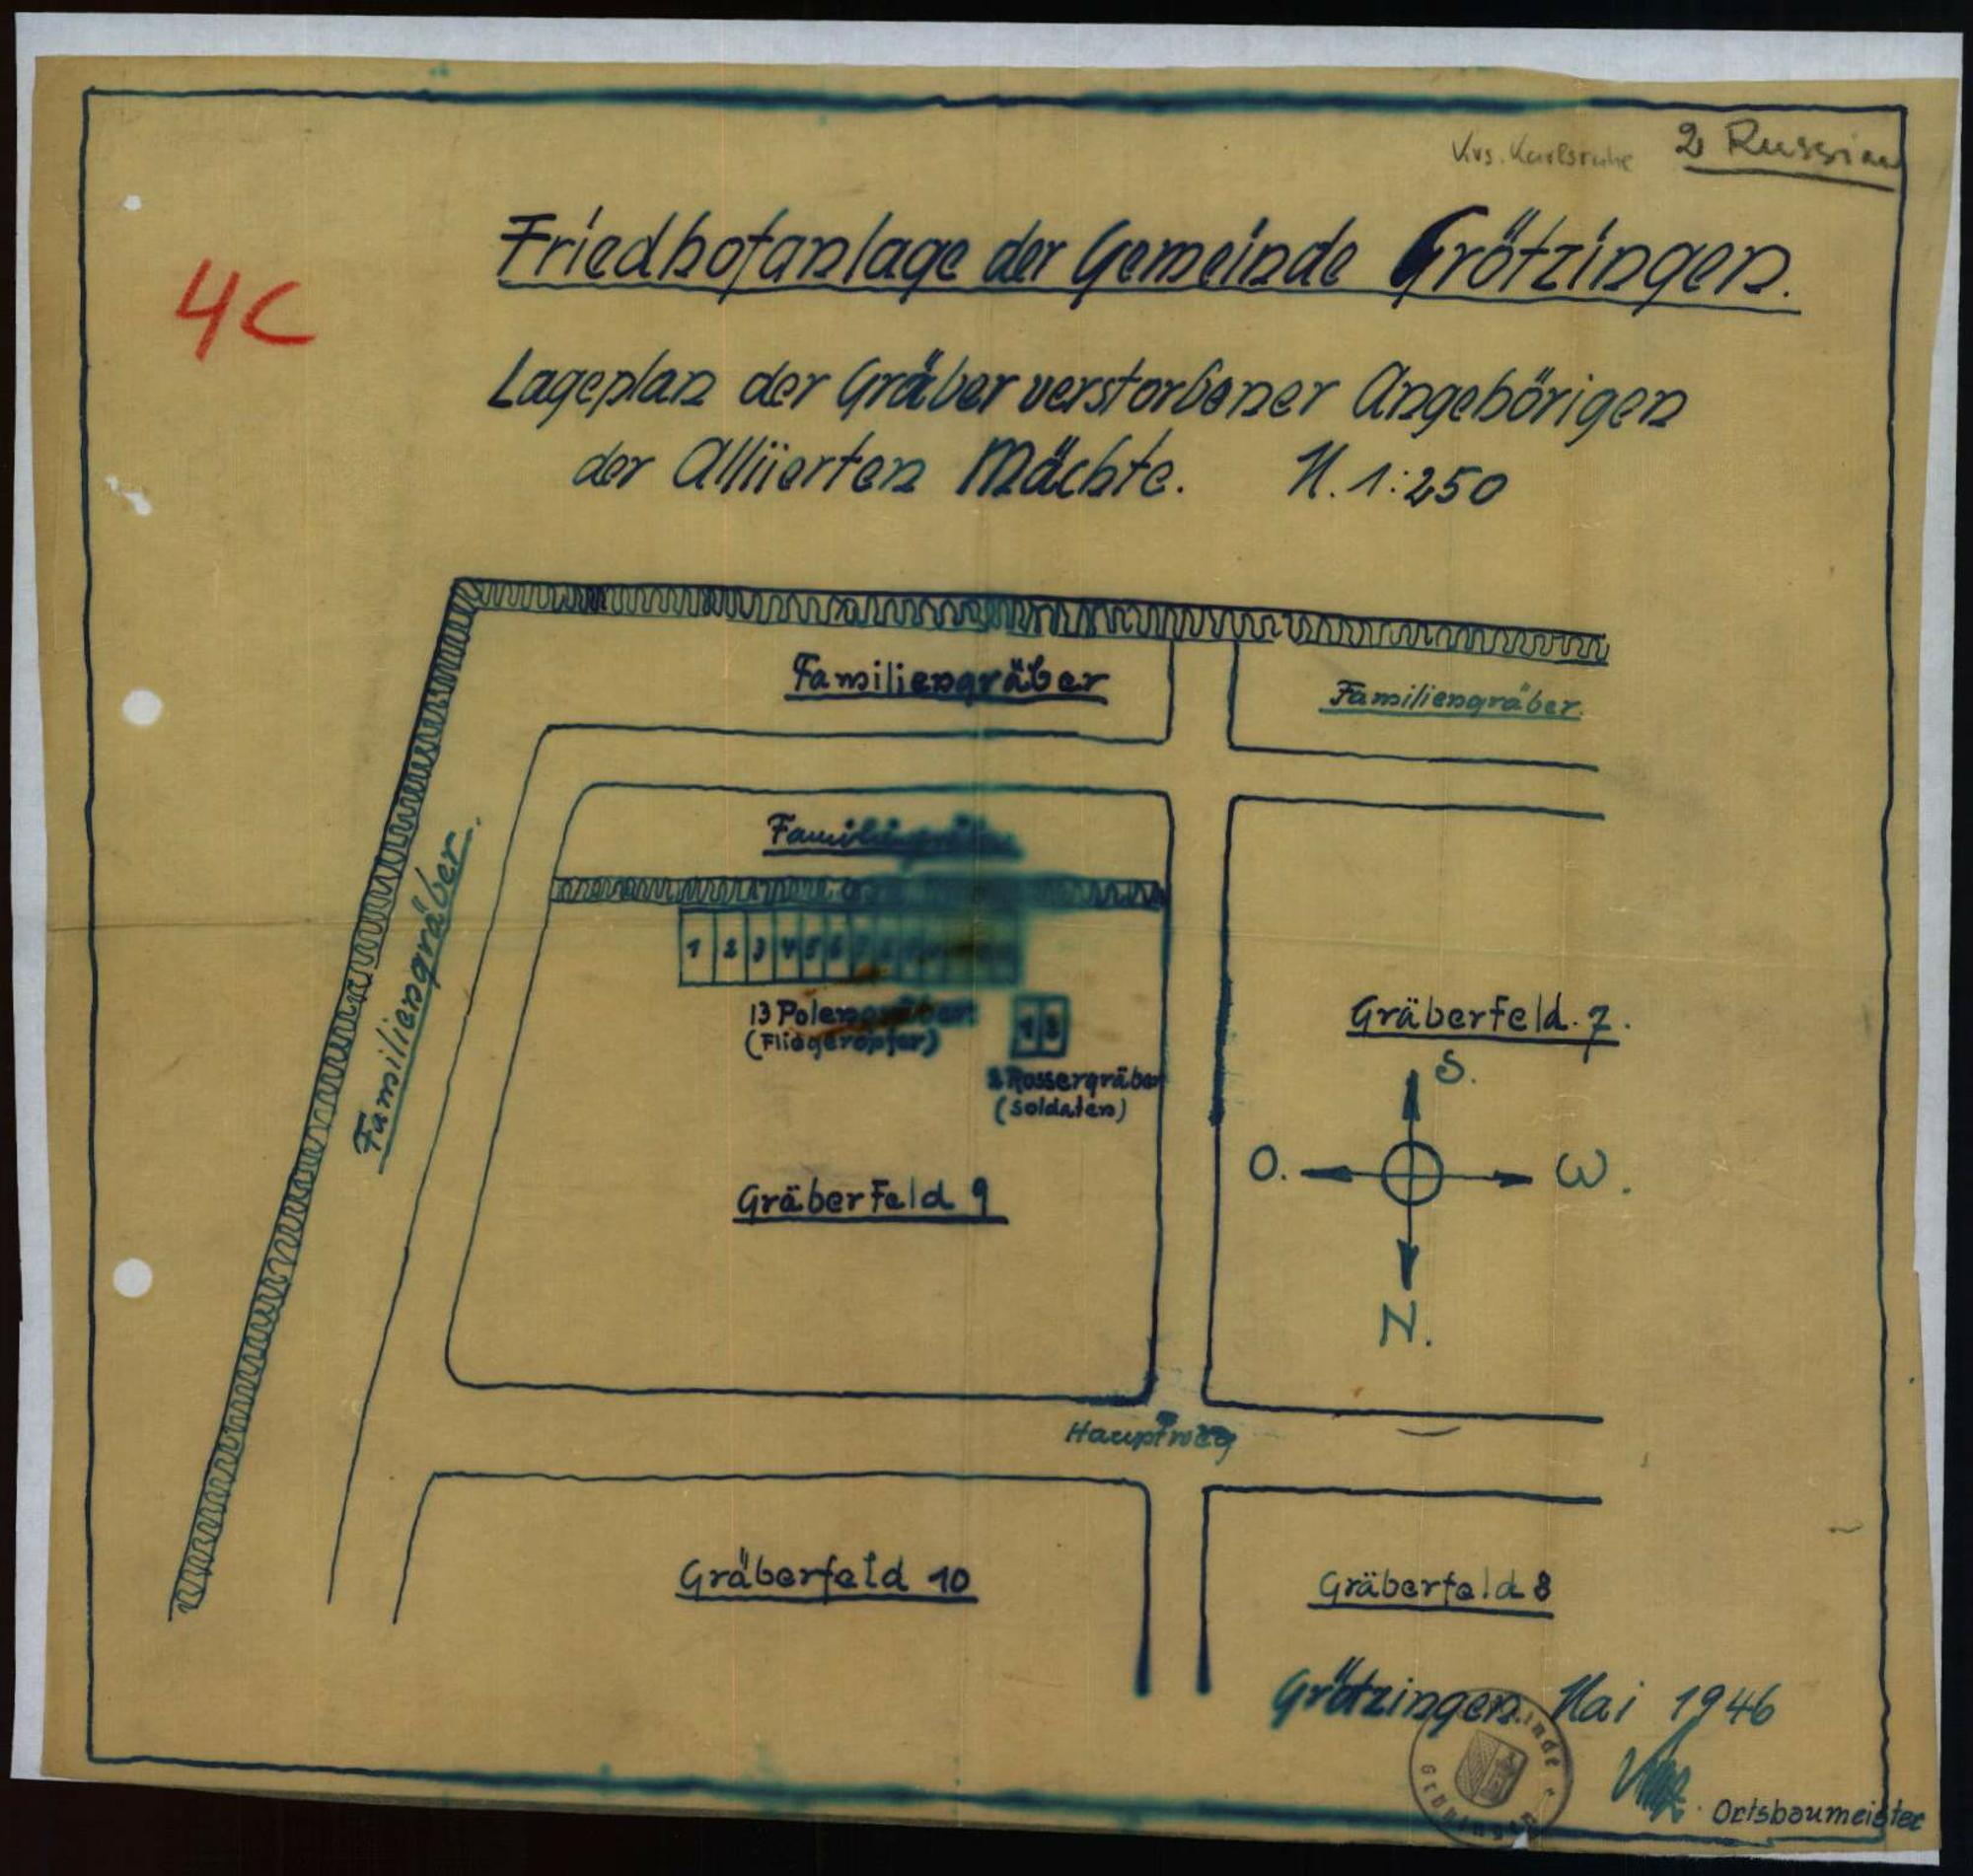 Krs. Karlsruhe 2 Russian
4C
Friedhofanlage der Gemeinde Grötzingen.
Lageplan der Gräber verstorbener Angehörigen
der Alliierten Mächte. M. 1:250
Familiengräber
Familiengräber.
Familiengräber
Familiengräber.
1 2 3 4 5 6 7 8 9
13 Polengräber
(Fliegeropfer)
1 2
2 Russergräber
(Soldaten)
Gräberfeld 7.
S.
O. W.
N.
Gräberfeld 9
Hauptweg
Gräberfeld 10
Gräberfeld 8
Grötzingen, Mai 1946
Gemeinde Grötzingen
Ortsbaumeister